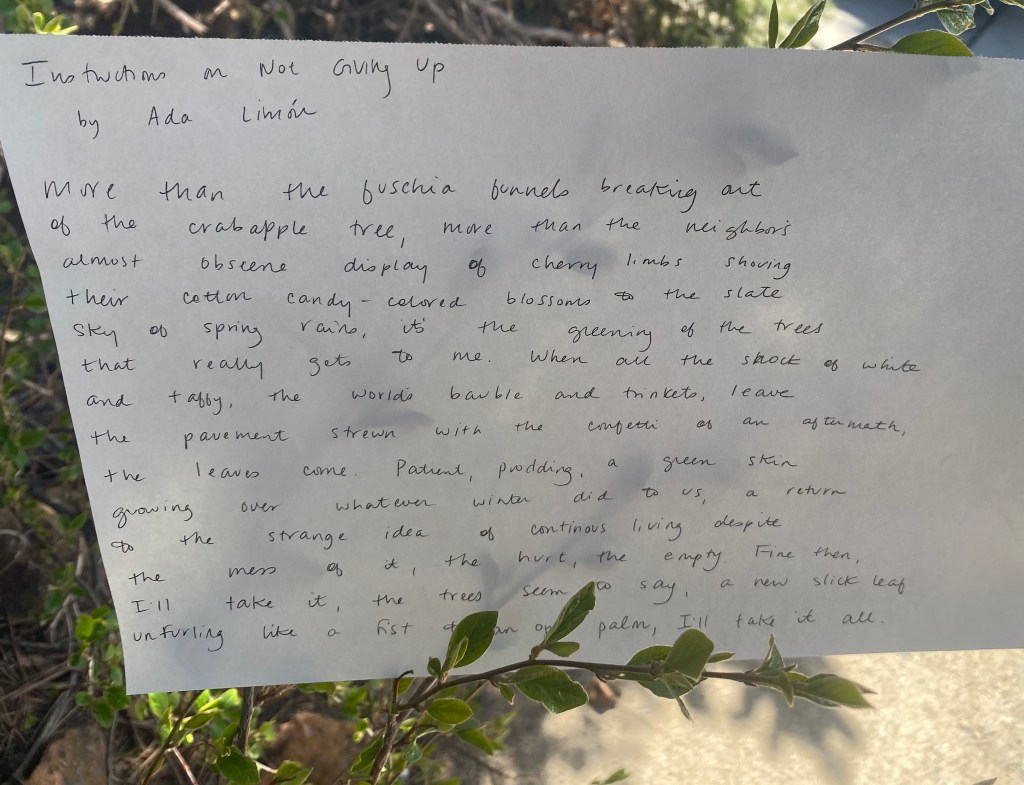 Instructions on Not Giving Up
by Ada Limón
More than the fuschia funnels breaking out
of the crabapple tree, more than the neighbor's
almost obscene display of cherry limbs shoving
their cotton candy-colored blossoms to the slate
sky of spring rains, it's the greening of the trees
that really gets to me. When all the shock of white
and taffy, the world's bauble and trinkets, leave
the pavement strewn with the confetti of an aftermath,
the leaves come. Patient, plodding, a green skin
growing over whatever winter did to us, a return
to the strange idea of continous living despite
the mess of it, the hurt, the empty. Fine then,
I'll take it, the trees seem to say, a new slick leaf
unfurling like a fist an palm, I'll take it all.